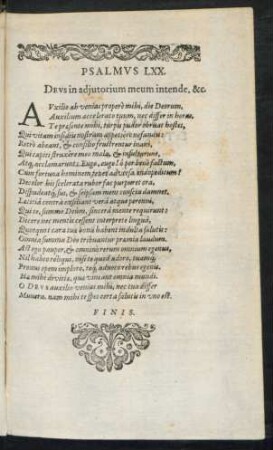 PSALMVS LXX.
DEVS in adjutorium meum intende, &c.
AVxilio ab venias properè mihi, die Deorum,
Auxilium accelerato tuum, nec differ in horas.
Te præsente mihi, turpis pudor obruat hostes,
Qui vitam insidiis nostram appetiere nefandis:
Retrò abeant, & consilio frustrentur inani,
Qui capiti struxêre meo mala, & insultarunt,
Atq, acclamarunt: Euge, euge! ô per bellè factum,
Cum fortuna hominem tenet adversa
Decolor his scelerata rubor fac purpuret ora,
Diffundatq, suo, & seipsam mens conscia damnet.
Lætitiâ contrà exsiliant verâ atque perenni,
Qui te, summe Deûm, sincerâ mente requirunt:
Dicere nec mentis cessent interprete linguâ,
Quicquot cara tua bona habent indulta salutis:
Omnia sunctus Deo tribuantur præmia laudum.
Ast ego pauper, & omnium rerum omnium egenus,
Nil habeo reliqui, nisi te quod adoro, tuamq,
Pronus opem imploro, tuq, admove rebus egenis,
Da mihi divitiis, qua vincant omnia mundi.
O DEVS auxilio venias mihi, nec tua differ
Munera. nam mihi te spes certa salutis in vno est.
FINIS.